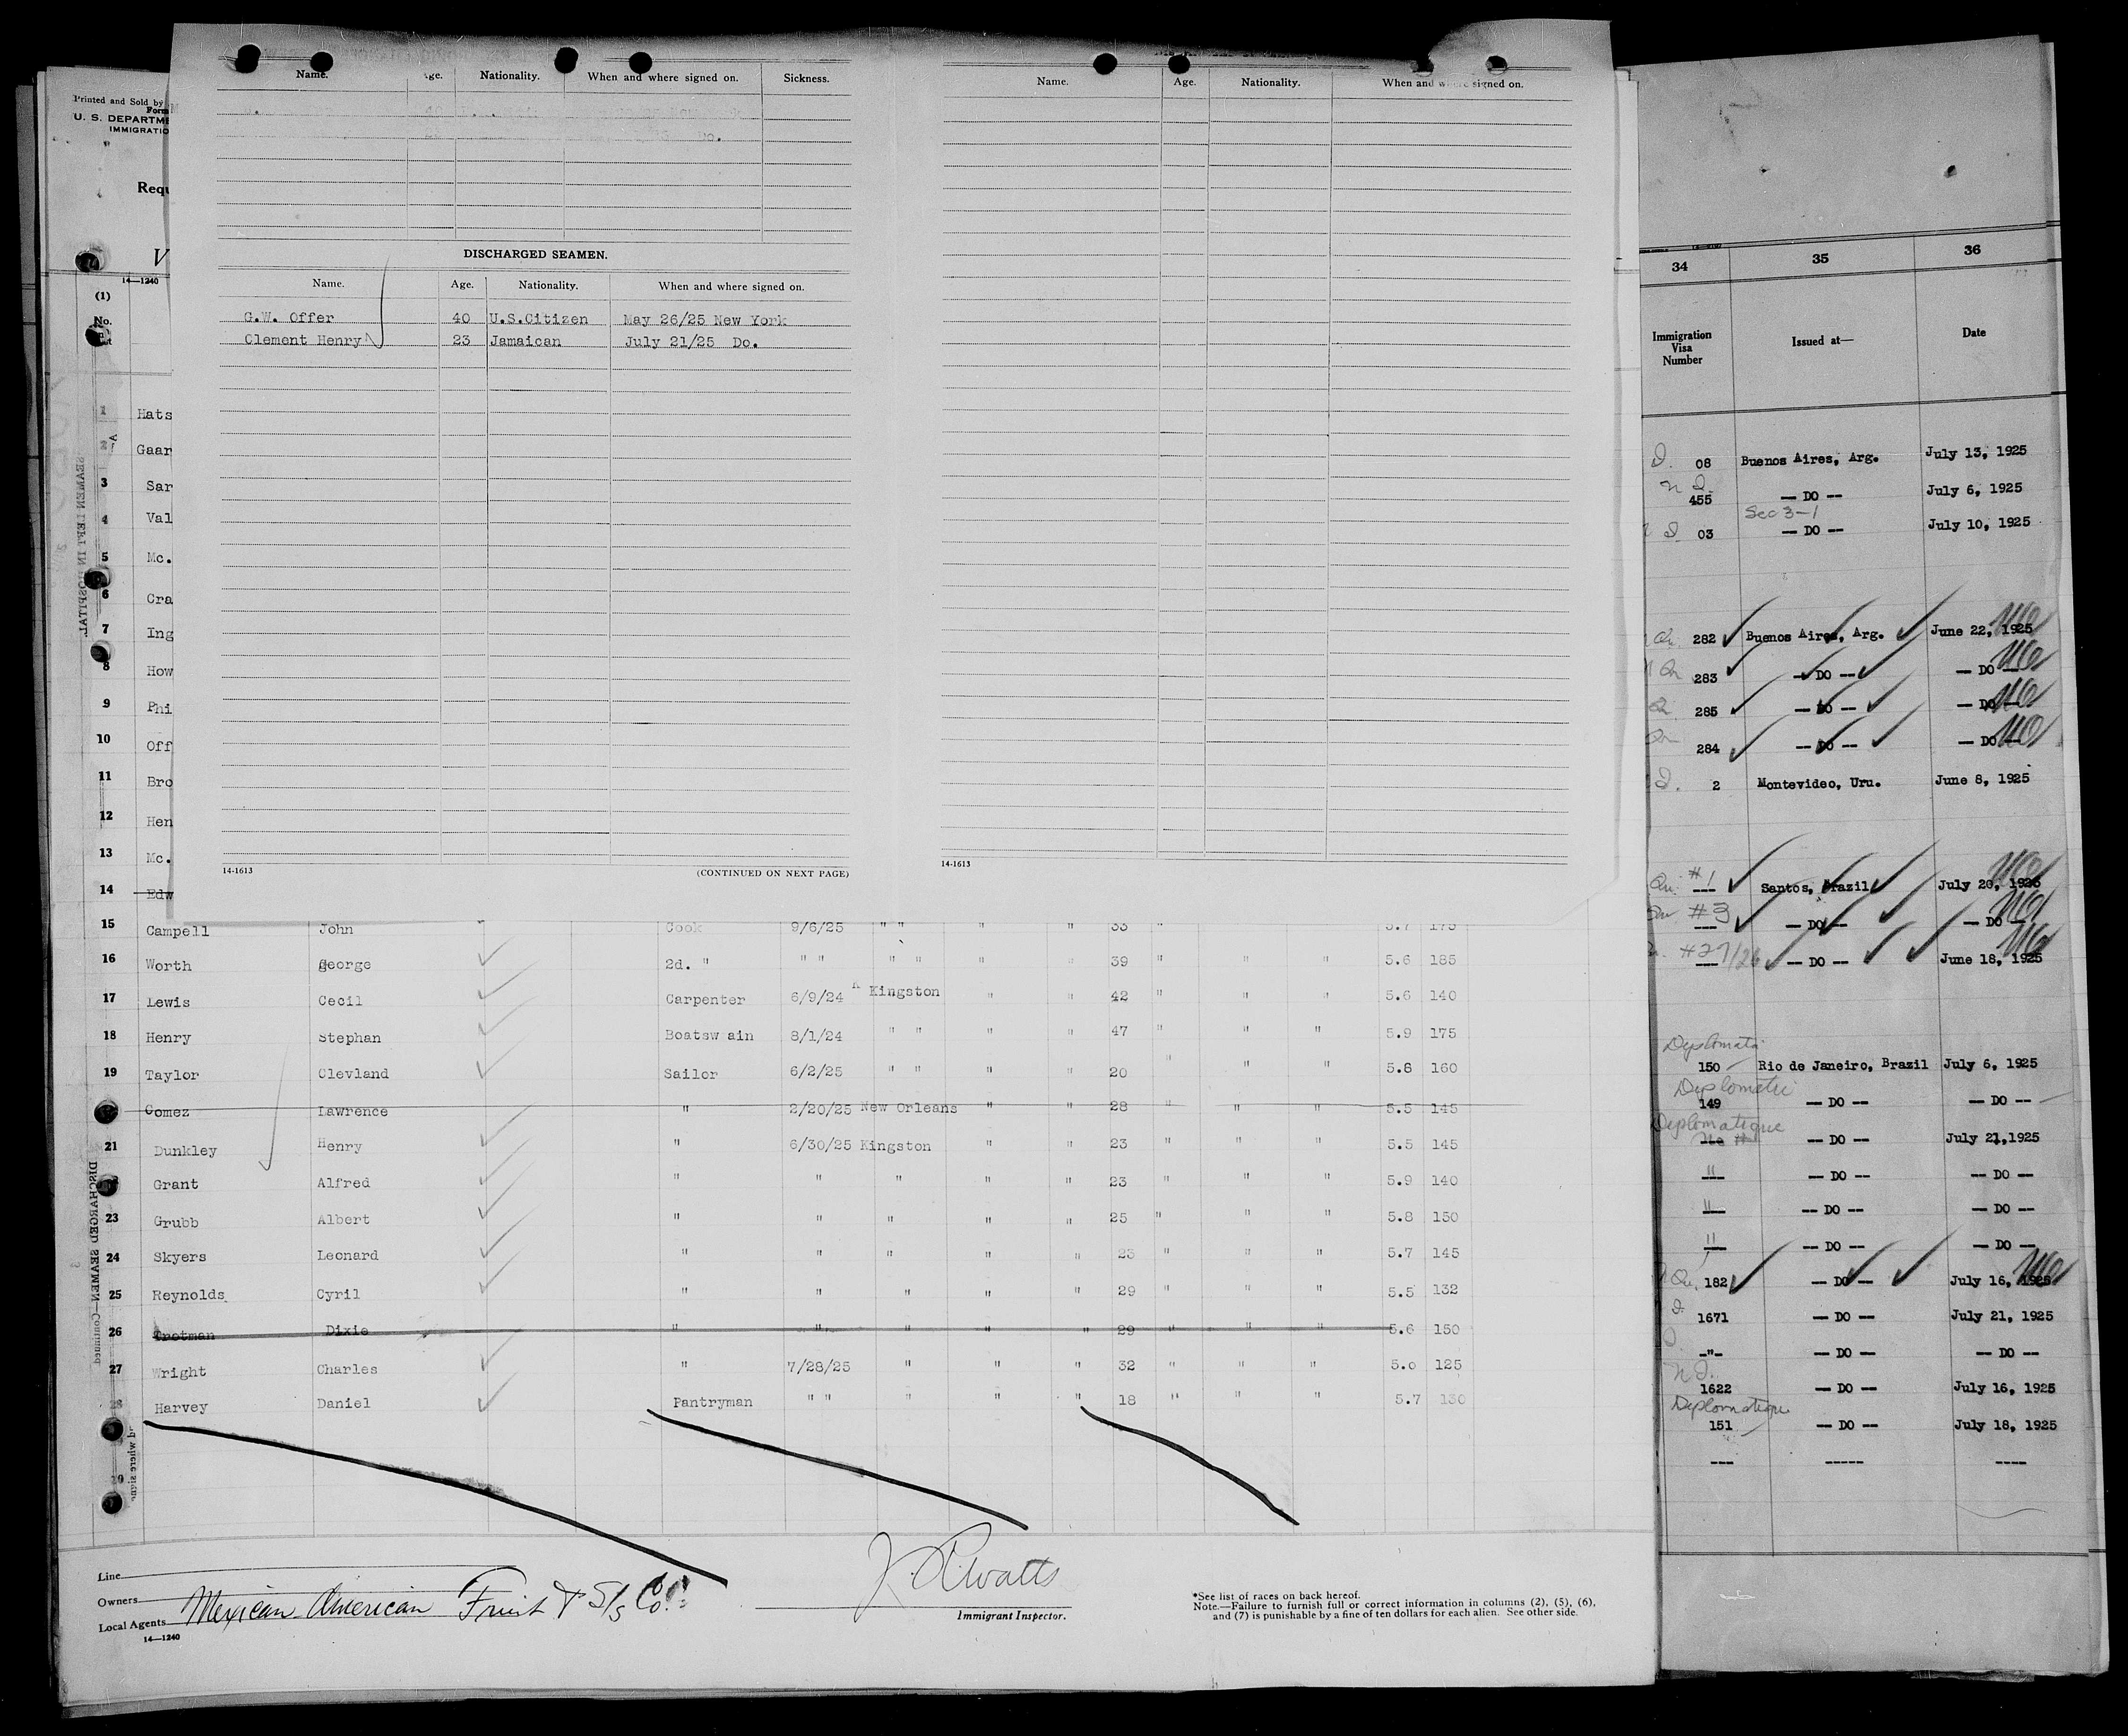 Name. Age. Nationality. When and where signed on. Sickness.
Do.
DISCHARGED SEAMEN.
Name. Age. Nationality. When and where signed on.
G.W. Offer 40 U.S.Citizen May 26/25 New York
Clement Henry 23 Jamaican July 21/25 Do.
14-1613 (CONTINUED ON NEXT PAGE)
Name. Age. Nationality. When and where signed on.
14-1613
Printed and Sold by
Form
U. S. DEPARTME
IMMIGRATIO
Requ
V
14—1240
(1)
No.
1 Hats
2 Gaar
3 Sar
4 Val
5 Mc.
6 Cra
7 Ing
8 How
9 Phi
10 Off
11 Bro
12 Hen
13 Mc.
14 Edw
SEAMEN LEFT IN HOSPITAL.
15 Campell John Cook 9/6/25 " " " " 33 " 5.7 175
16 Worth george 2d. " " " " " " " 39 " " " 5.6 185
17 Lewis Cecil Carpenter 6/9/24 Kingston " " 42 " " " 5.6 140
18 Henry Stephan Boatswain 8/1/24 " " " " 47 " " " 5.9 175
19 Taylor Clevland Sailor 6/2/25 " " " " 20 " " " 5.8 160
Gomez Lawrence " 2/20/25 New Orleans " " 28 " " " 5.5 145
21 Dunkley Henry " 6/30/25 Kingston " " 23 " " " 5.5 145
Grant Alfred " " " " " 23 " " " 5.9 140
23 Grubb Albert " " " " " 25 " " " 5.8 150
24 Skyers Leonard " " " " " 23 " " " 5.7 145
25 Reynolds Cyril " " " " " 29 " " " 5.5 132
26 Trotman Dixie " " " " " 29 " " " 5.6 150
27 Wright Charles " 7/28/25 " " " 32 " " " 5.0 125
28 Harvey Daniel Pantryman " " " " " 18 " " " 5.7 130
DISCHARGED SEAMEN—Continued
Line
Owners
Local Agents Mexican American Fruit & S/S Co.
14—1240
Immigrant Inspector.
*See list of races on back hereof.
Note.—Failure to furnish full or correct information in columns (2), (5), (6),
and (7) is punishable by a fine of ten dollars for each alien. See other side.
34 35 36
Immigration Visa Number Issued at— Date
08 Buenos Aires, Arg. July 13, 1925
455 — DO -- July 6, 1925
Sec 3-1
03 — DO — July 10, 1925
282 Buenos Aires, Arg. June 22, 1925
283 — DO -- — DO —
285 — DO -- — DO —
284 -- DO -- — DO —
2 Montevideo, Uru. June 8, 1925
#1 Santos, Brazil July 20, 1925
#3 — DO — — DO —
#27/26 — DO -- June 18, 1925
Diplomatic
150 Rio de Janeiro, Brazil July 6, 1925
Diplomatic
149 — DO -- — DO --
Diplomatique
No # — DO -- July 21,1925
" — DO -- — DO —
" — DO -- — DO —
" — DO -- — DO —
182 — DO — July 16, 1925
1671 — DO — July 21, 1925
-"- — DO — — DO —
1622 — DO — July 16, 1925
Diplomatique
151 — DO — July 18, 1925
--- ----- ----